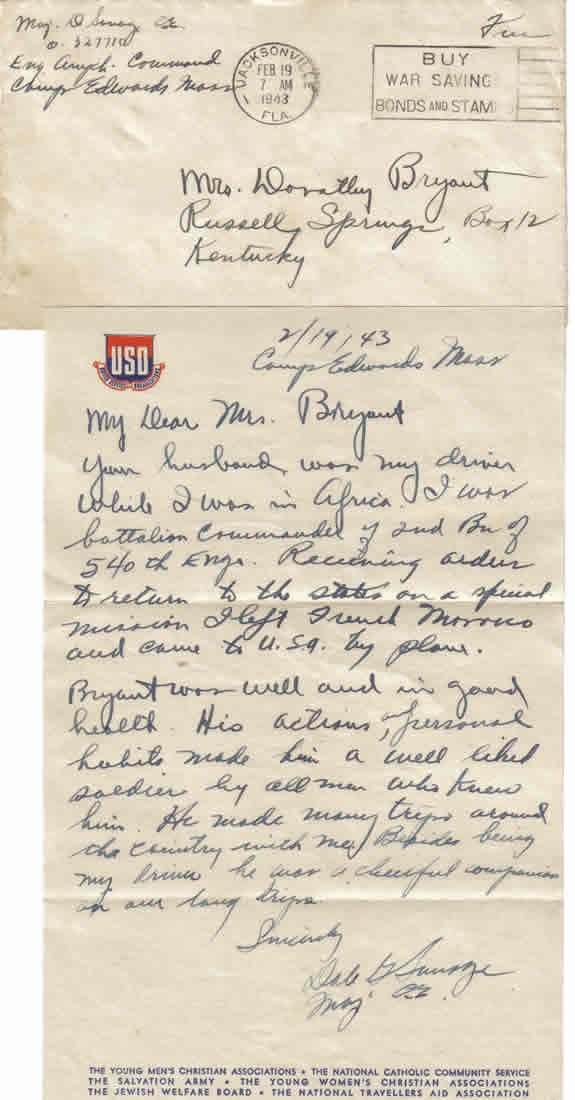 Maj. D. Savage CE
O-
Eng Amph. Command
Camp Edwards Mass
Free
JACKSONVILLE
FEB 19
7 AM
1943
FLA.
BUY
WAR SAVING
BONDS AND STAM
Mrs. Dorothy Bryant
Russell Springs, Box 12
Kentucky
USO
2/19/43
Camp Edwards Mass
My Dear Mrs. Bryant
Your husband was my driver
while I was in Africa. I was
battalion Commander of 2nd Bn of
540th Engs. Receiving orders
to return to the states on a special
mission I left French Morocco
and came to U.S.A. by plane.
Bryant was well and in good
health. His actions, & personal
habits made him a well liked
soldier by all men who knew
him. He made many trips around
the country with me. Besides being
my driver he was a cheerful companion
on our long trips.
Sincerely
Dale
Maj CE
THE YOUNG MEN'S CHRISTIAN ASSOCIATIONS • THE NATIONAL CATHOLIC COMMUNITY SERVICE
THE SALVATION ARMY • THE YOUNG WOMEN'S CHRISTIAN ASSOCIATIONS
THE JEWISH WELFARE BOARD • THE NATIONAL TRAVELLERS AID ASSOCIATION